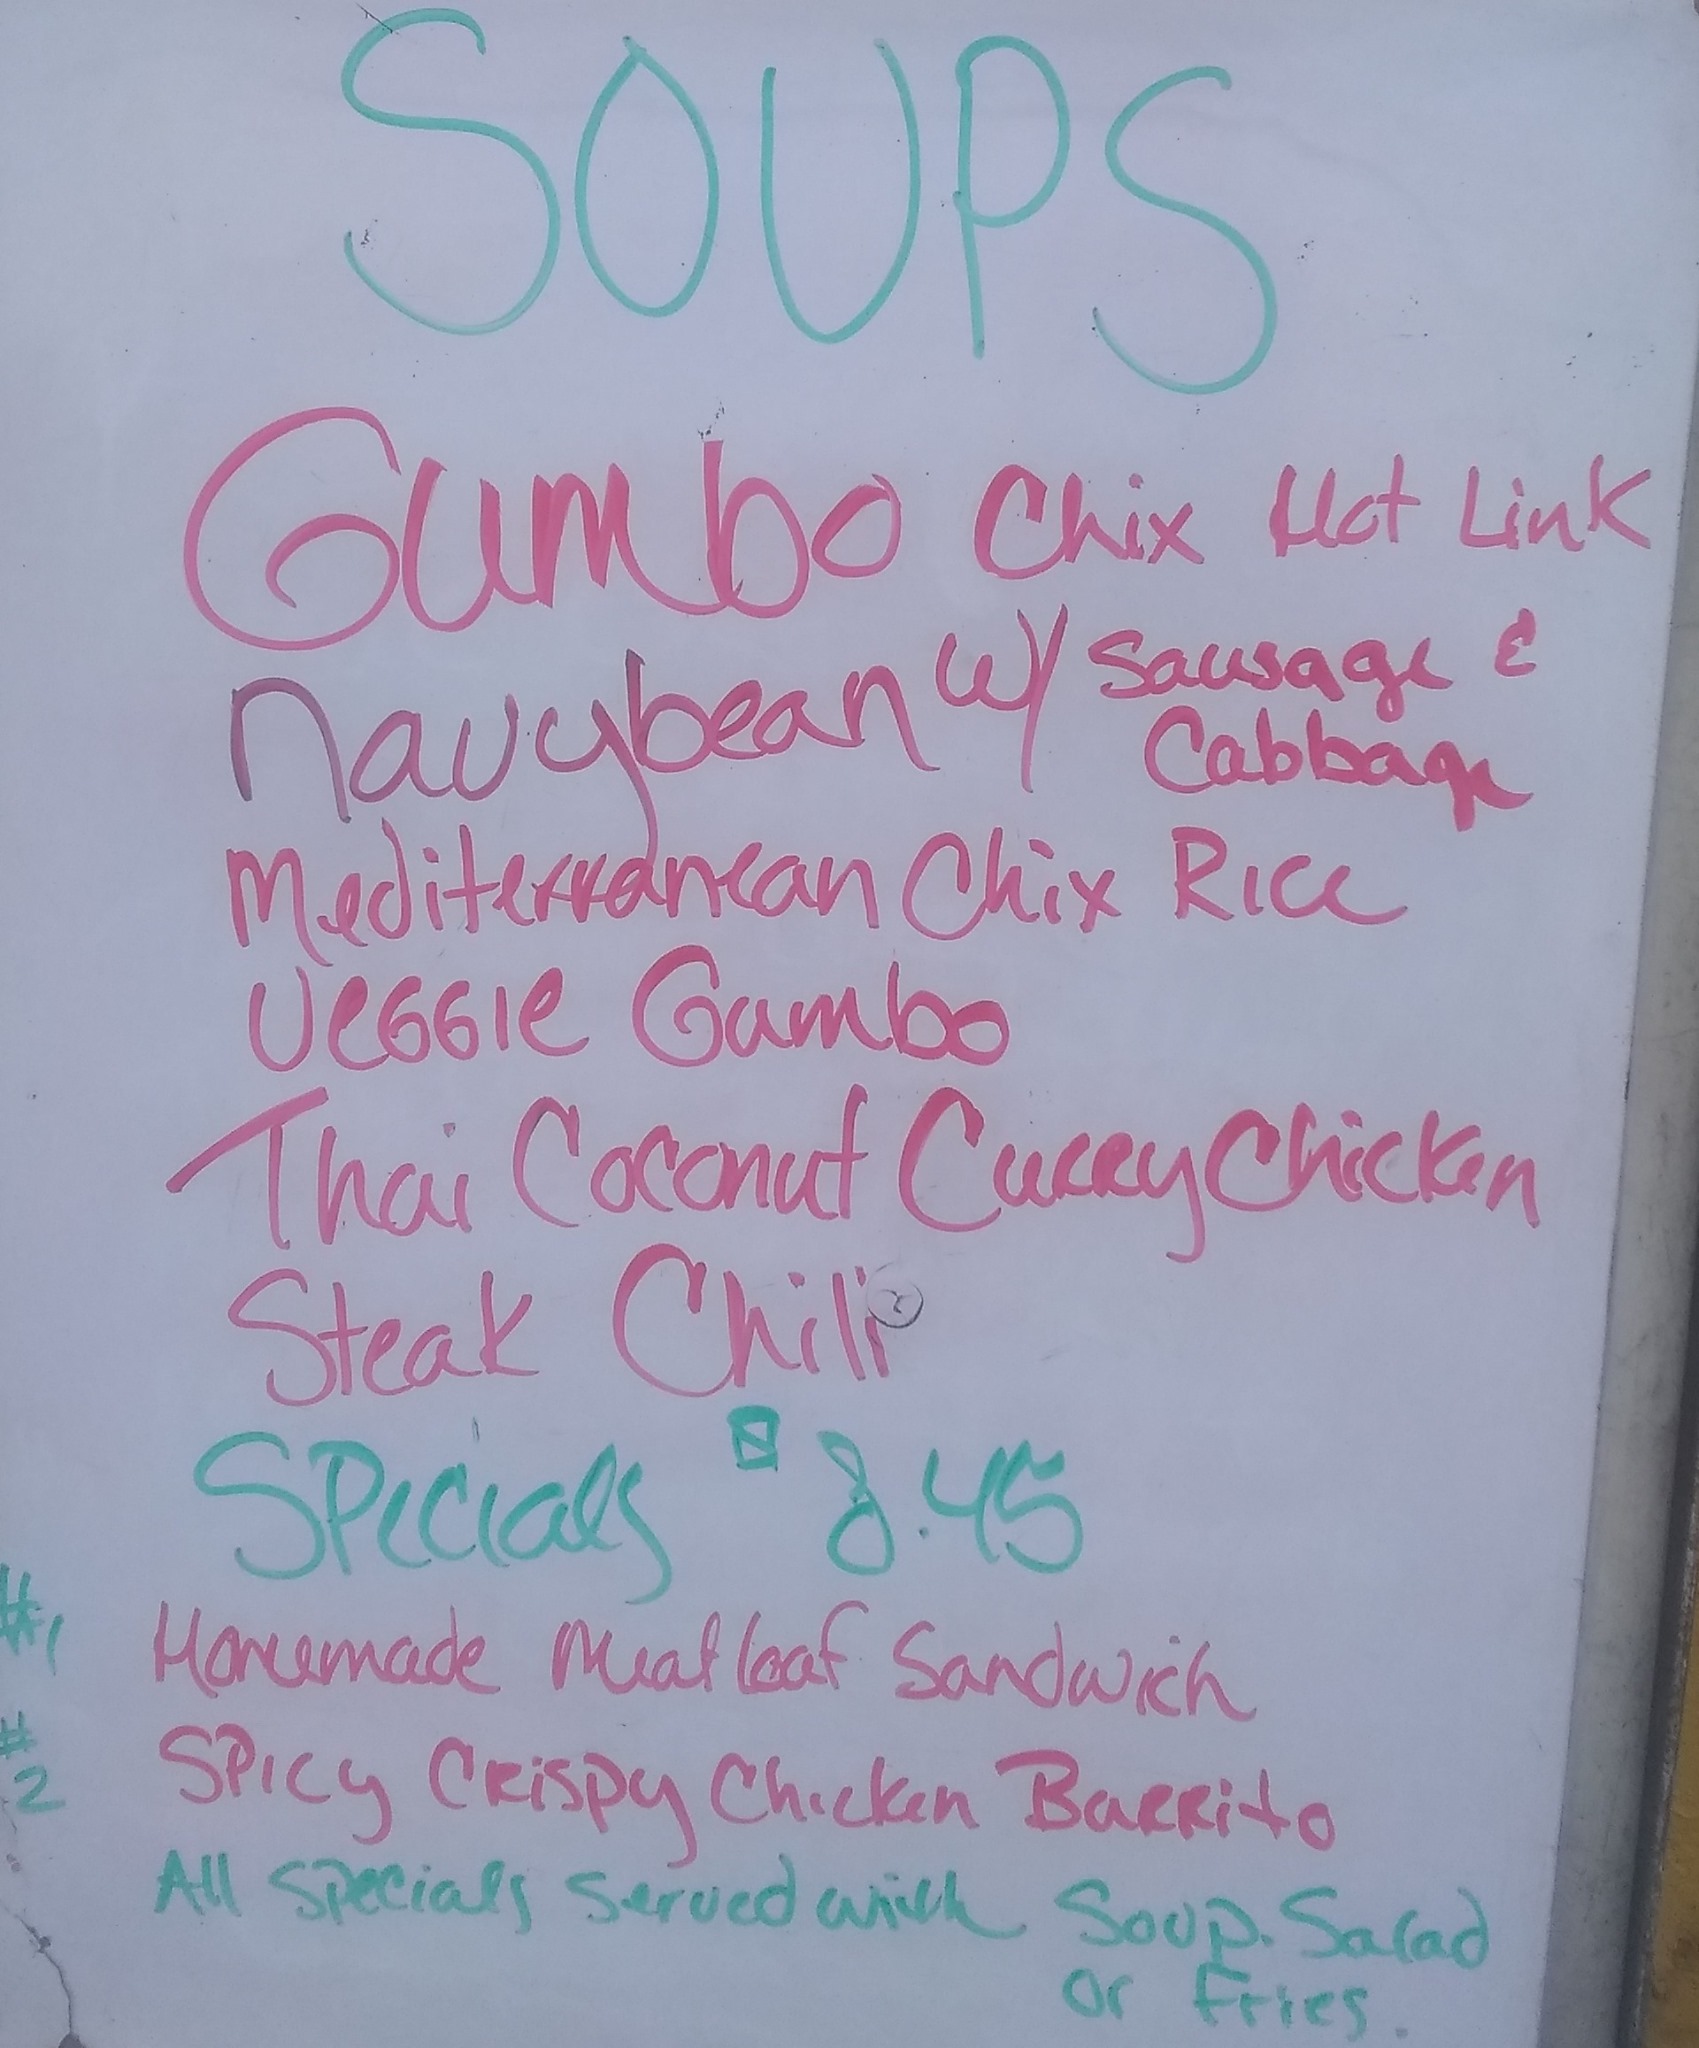 SOUPS
Gumbo Chix Hot Link
Navybean w/ Sausage &
Cabbage
Mediterranean Chix Rice
Veggie Gumbo
Thai Coconut Curry Chicken
Steak Chili
Specials 8.45
#1 Homemade Meatloaf Sandwich
#2 Spicy Crispy Chicken Burrito
All Specials Served with Soup. Salad
or Fries.